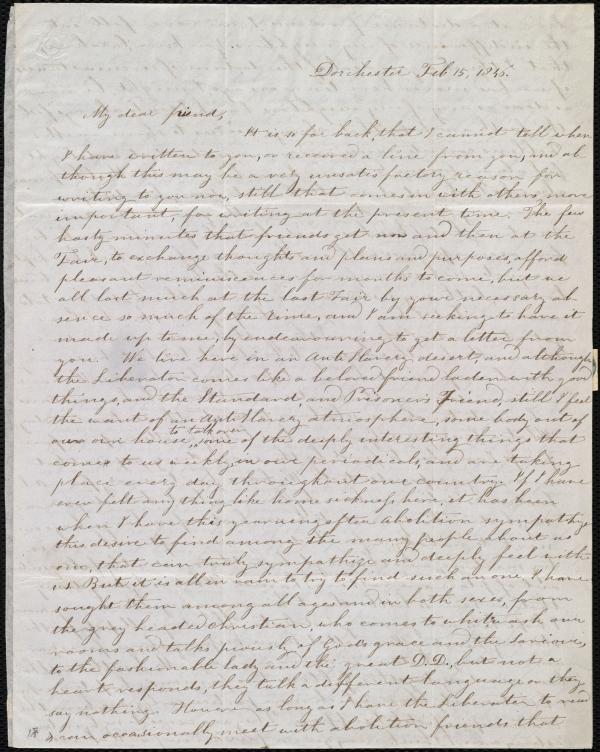 Dorchester Feb 15, 1846.
My dear friend,
It is so far back, that I cannot tell when
I have written to you, or received a line from you, and al
though this may be a very unsatisfactory reason for
writing to you now, still that comes in with others, more
important, for writing at the present time. The few
hasty minutes that friends get now and then at the
Fair, to exchange thoughts and plans and purposes, afford
pleasant reminiscences for months to come, but we
all lost much at the last Fair by your necessary ab
sence so much of the time, and I am seeking to have it
made up to me, by endeavouring to get a letter from
you. We live here in an Anti Slavery desert, and although
the Liberator comes like a beloved friend laden with good
things, and the Standard, and Prisoner's Friend, still I feel
the want of an Anti Slavery atmosphere, some body out of
our own house, to talk over some of the deeply interesting things that
comes to us weekly, in our periodicals, and are taking
place every day throughout our country. If I have
ever felt any thing like home sickness here, it has been
when I have this yearning after abolition sympathy,
this desire to find among the many people about us
one, that can truly sympathize and deeply feel with
us. But it is all in vain to try to find such an one, I have
sought them among all ages and in both sexes, from
the grey headed Christian, who comes to whitewash our
rooms and talks piously of God's grace and the Saviour,
to the fashionable lady and the great D.D., but not a
heart responds, they talk a different language or they
say nothing. However as long as I have the Liberator to read
& can occasionally meet with abolition friends that